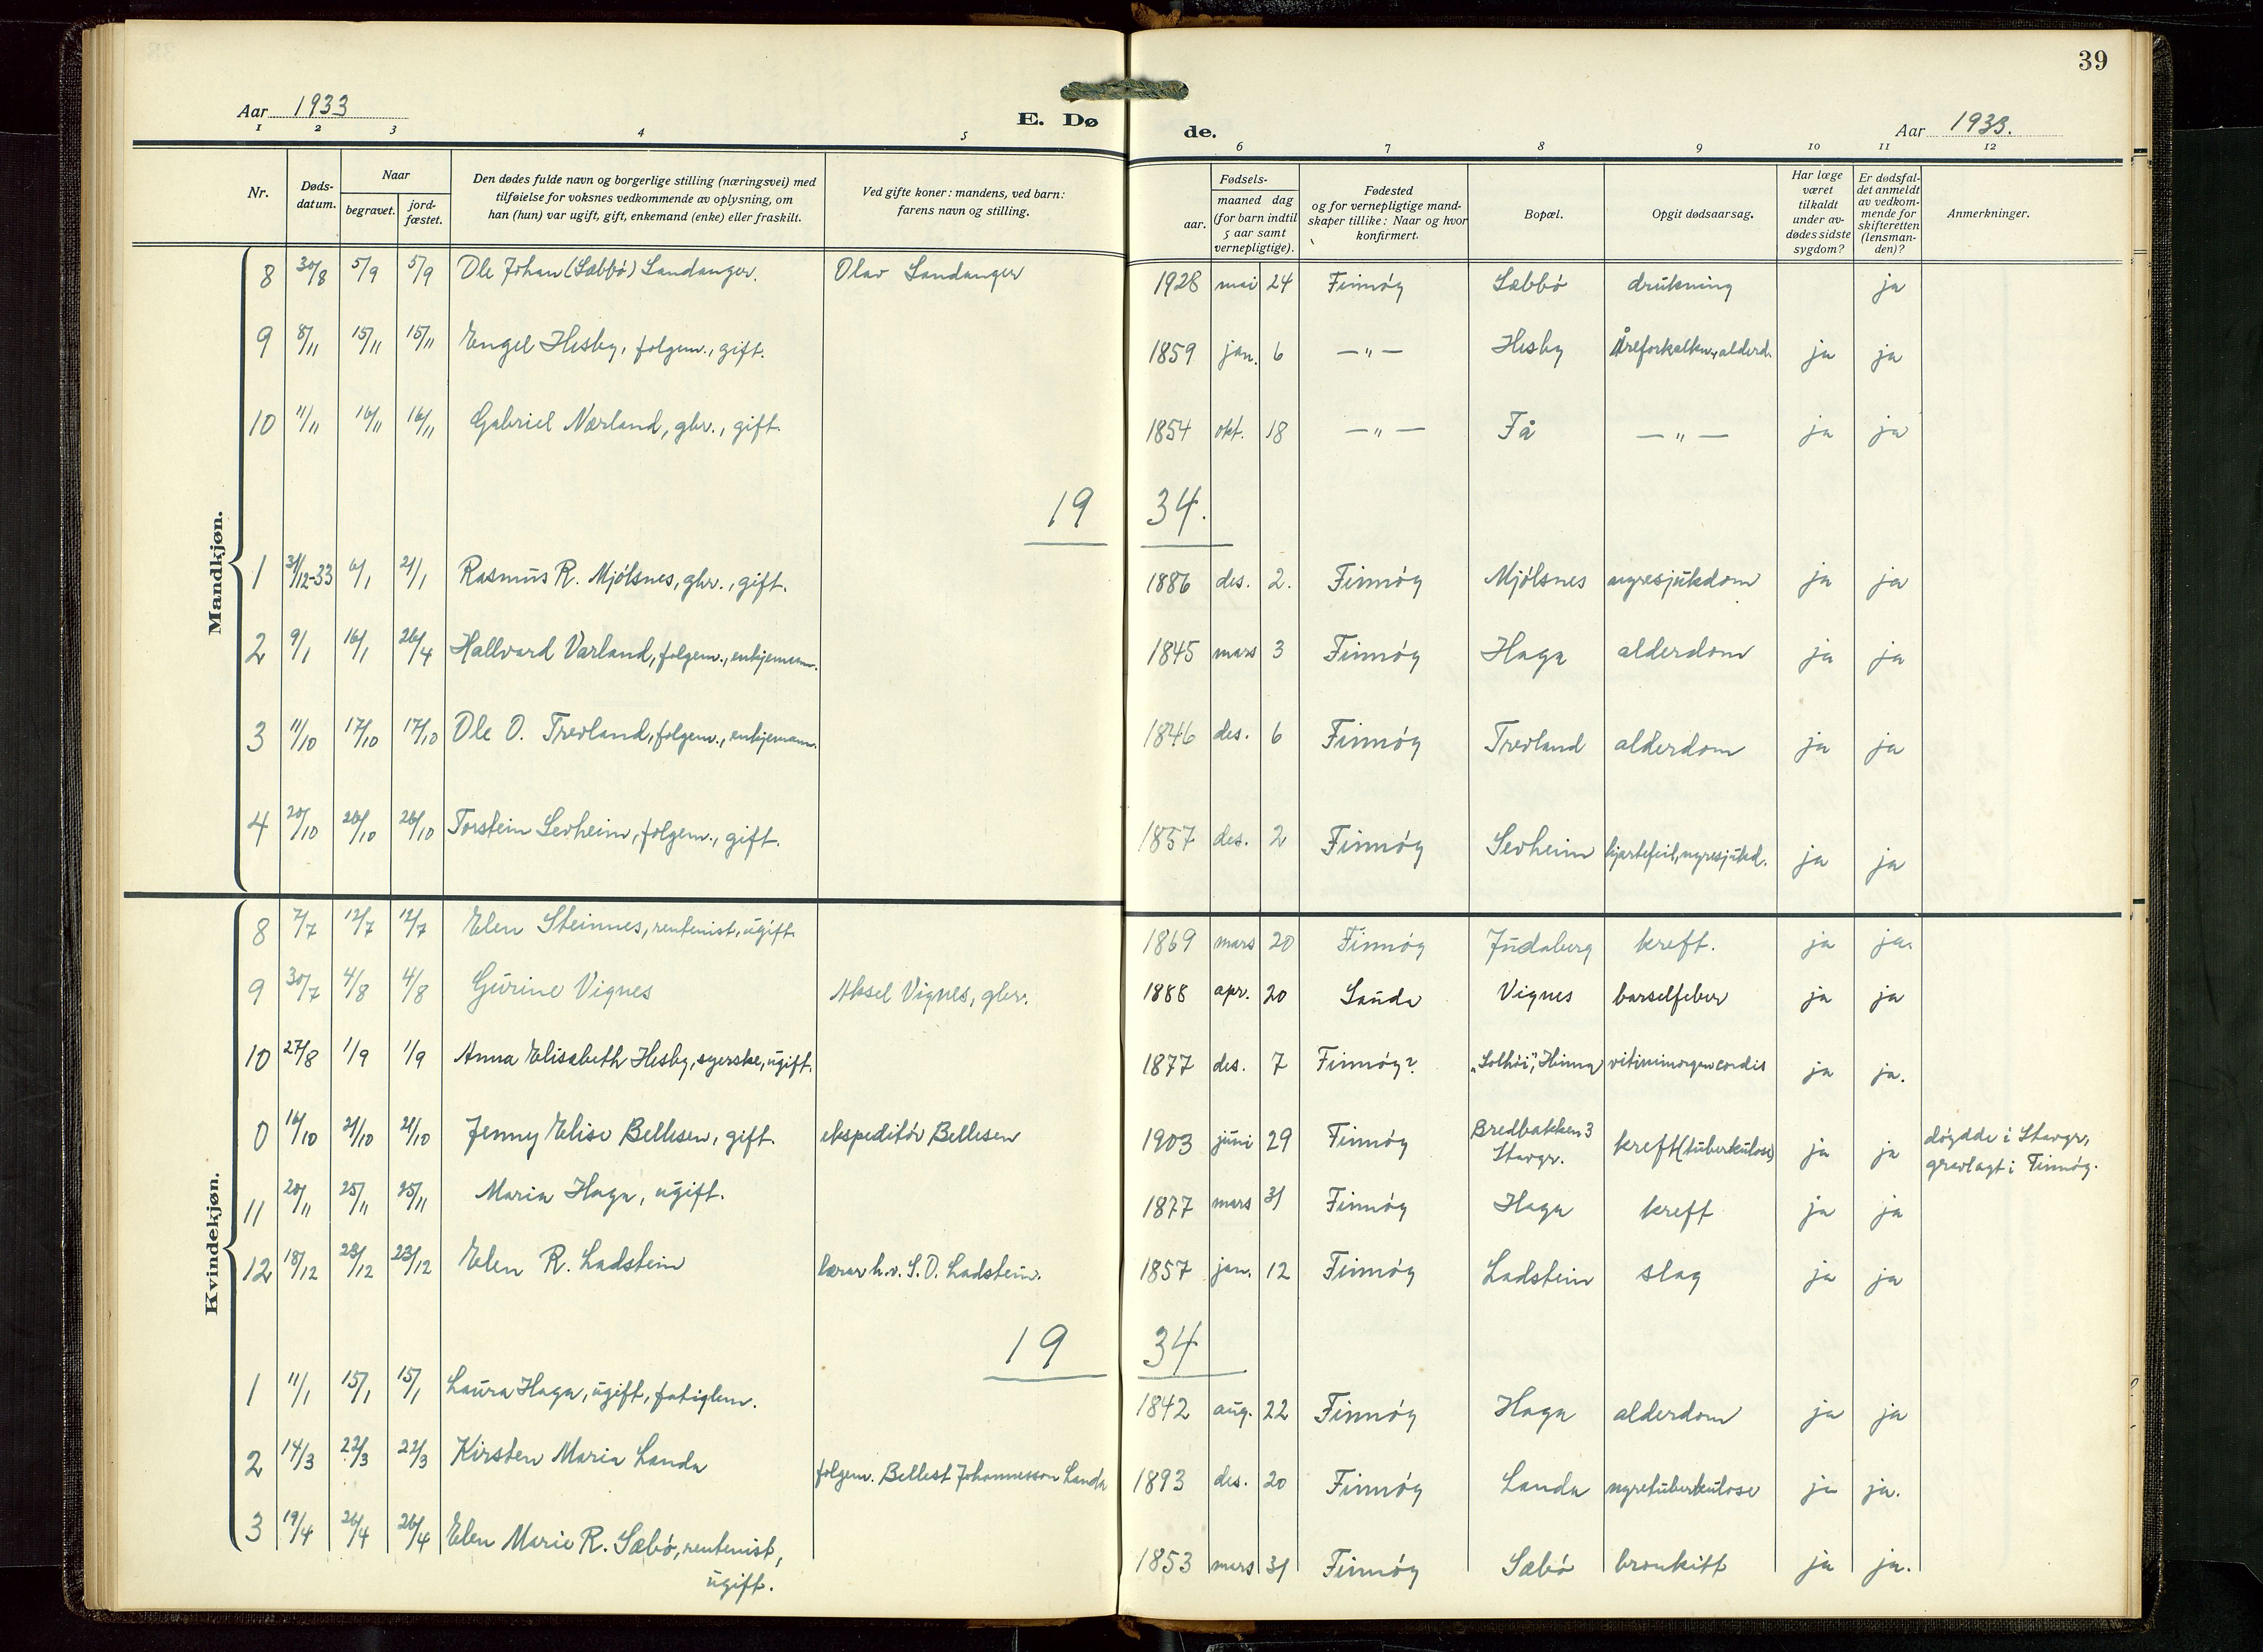 39
Aar 1933
E. Dø
de.
Aar 1933.
1 2 3 4 5 6 7 8 9 10 11 12
Nr.
Døds-
datum.
Naar
begravet.
jord-
fæstet.
Den dødes fulde navn og borgerlige stilling (næringsvei) med
tilføielse for voksnes vedkommende av oplysning, om
han (hun) var ugift, gift, enkemand (enke) eller fraskilt.
Ved gifte koner: mandens, ved barn:
farens navn og stilling.
Fødsels-
aar.
maaned dag
(for barn indtil
5 aar samt
vernepligtige).
Fødested
og for vernepligtige mand-
skaper tillike: Naar og hvor
konfirmert.
Bopæl.
Opgit dødsaarsag.
Har læge
været
tilkaldt
under av-
dødes sidste
sygdom?
Er dødsfal-
det anmeldt
av vedkom-
mende for
skifteretten
(lensman-
den)?
Anmerkninger.
Mandkjøn.
8 30/8 5/9 5/9 Ole Johan (Sæbbø) Landanger. Olav Landanger 1928 mai 24 Finnøy Sæbbø drukning ja
9 8/11 15/11 15/11 Engel Hesby, folgem., gift. 1859 jan. 6 —"— Hesby Åreforkalkn., alderd. ja ja
10 11/11 16/11 16/11 Gabriel Nærland, gbr., gift. 1854 okt. 18 —"— Få —"— ja ja
19 34.
1 31/12-33 6/1 21/1 Rasmus R. Mjølsnes, gbr., gift. 1886 des. 2. Finnøy Mjølsnes nyresjukdom ja ja
2 9/1 16/1 26/4 Hallvard Varland, folgem., enkjemann. 1845 mars 3 Finnøy Haga alderdom ja ja
3 11/10 17/10 17/10 Ole O. Trevland, folgem., enkjemann. 1846 des. 6 Finnøy Trevland alderdom ja ja
4 20/10 26/10 26/10 Torstein Sevheim, folgem., gift. 1857 des. 2 Finnøy Sevheim hjartefeil, nyresjukd. ja ja
Kvindekjøn.
8 7/7 12/7 12/7 Elen Steinnes, rentenist, ugift. 1869 mars 20 Finnøy Judaberg kreft. ja ja.
9 30/7 4/8 4/8 Gurine Vignes Aksel Vignes, gbr. 1888 apr. 20 Sauda Vignes barselfeber ja ja
10 27/8 1/9 1/9 Anna Elisabeth Hesby, syerske, ugift. 1877 des. 7 Finnøy? "Solhøi", Hinna cordis ja ja.
0 16/10 21/10 21/10 Jenny Elise Bellesen, gift. ekspeditør Bellesen 1903 juni 29 Finnøy Bredbakken 3
Stavgr. kreft (tuberkulose) ja ja døydde i Stavgr,
gravlagt i Finnøy.
11 20/11 25/11 25/11 Maria Haga, ugift. 1877 mars 31 Finnøy Haga kreft ja ja
12 18/12 23/12 23/12 Elen R. Ladstein lærar h.v. S. O. Ladstein. 1857 jan. 12 Finnøy Ladstein slag ja ja
19 34
1 11/1 15/1 15/1 Laura Haga, ugift, fatiglem. 1842 aug. 22 Finnøy Haga alderdom ja ja
2 14/3 22/3 22/3 Kirsten Maria Landa folgem. Bellest Johannesson Landa 1893 des. 20 Finnøy Landa nyretuberkulose ja ja.
3 19/4 26/4 26/4 Elen Marie R. Sæbø, rentenist,
ugift. 1853 mars 31 Finnøy Sæbø bronkitt ja ja.